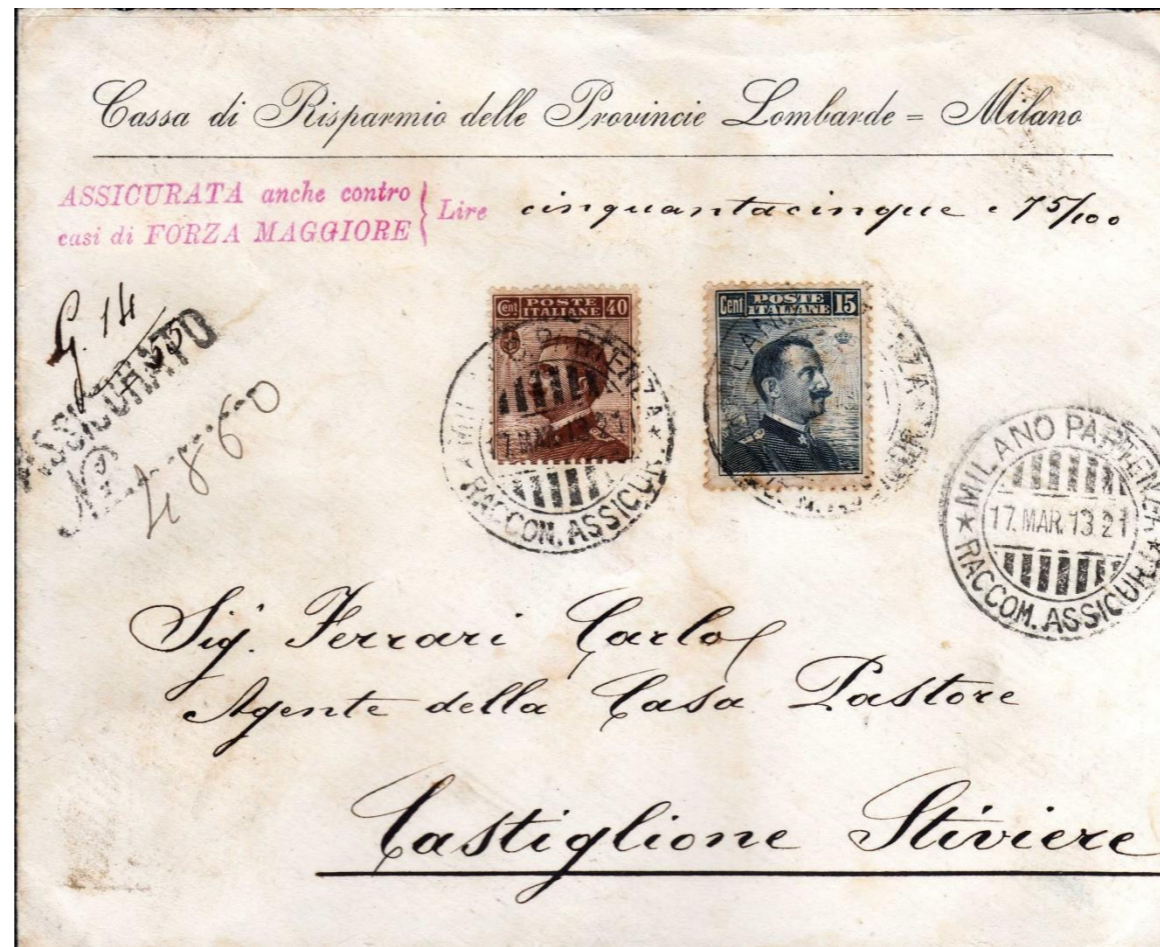 Cassa di Risparmio delle Provincie Lombarde = Milano
ASSICURATA anche contro
casi di FORZA MAGGIORE
Lire cinquantacinque e 75/100
G. 14
55
ASSICURATO
N
Cent POSTE ITALIANE 40
Cent POSTE ITALIANE 15
17. MAR. 13 21
RACCOM. ASSICUR
MILANO PARTENZA
17. MAR. 13 21
RACCOM. ASSICUR
Sig. Ferrari Carlo
Agente della Casa Pastore
Castiglione Stiviere